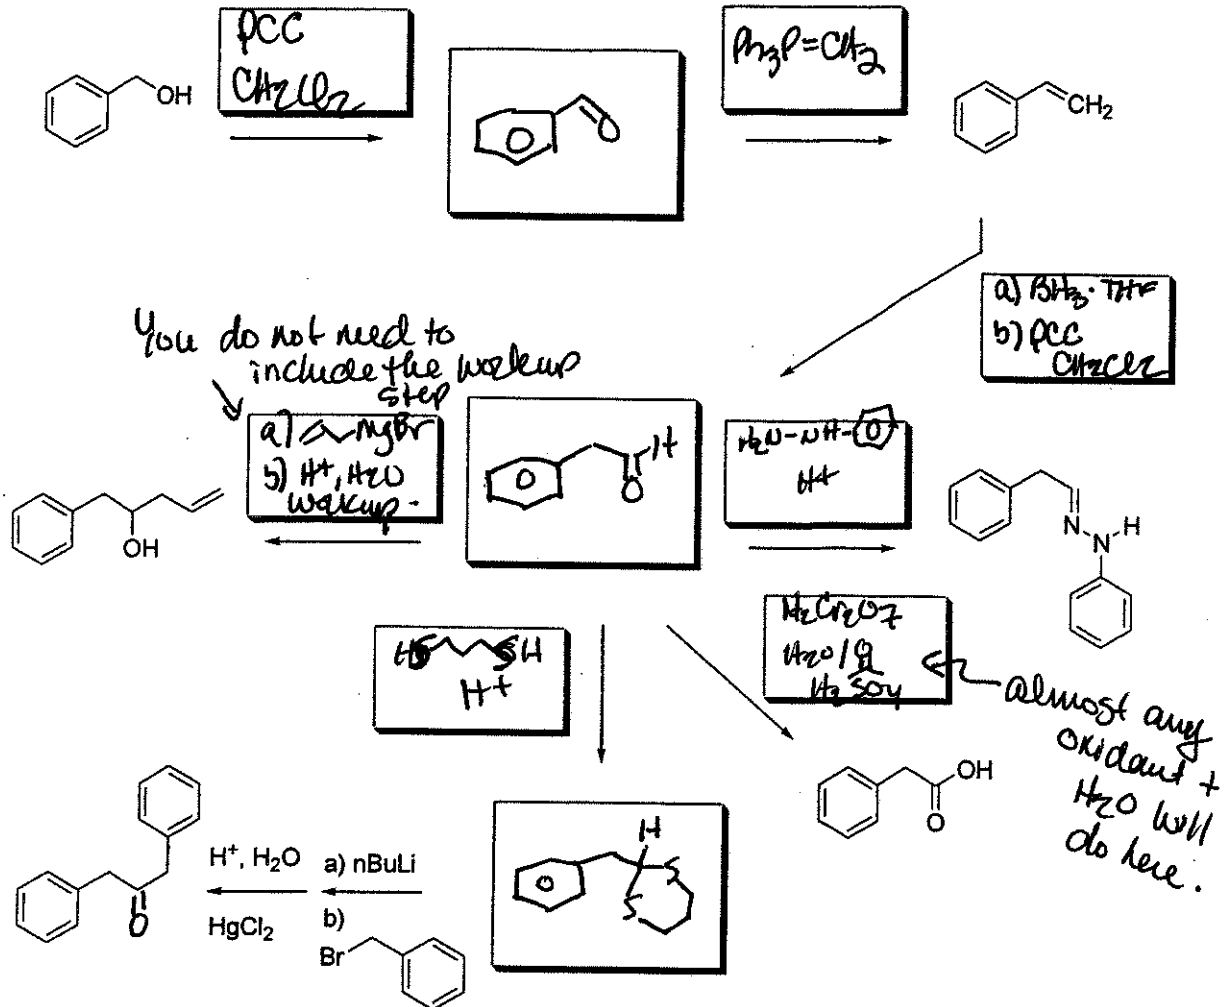 PCC
CH2Cl2
OH
O
Ph3P=CH2
CH2
a) BH3·THF
b) PCC
CH2Cl2
You do not need to
include the workup
step
a) MgBr
b) H+, H2O
workup.
OH
H
O
H2N-NH-
H+
N
N
H
HS SH
H+
H2Cr2O7
H2O/
H2SO4
almost any
oxidant +
H2O will
do here.
OH
O
H
S
S
H+, H2O
HgCl2
a) nBuLi
b)
Br
O